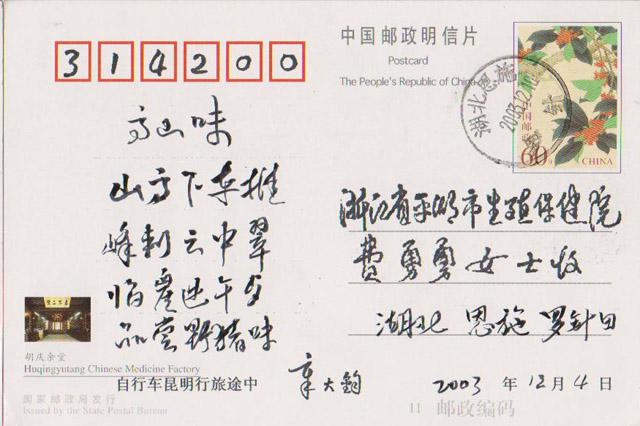 314200
中国邮政明信片
Postcard
The People's Republic of China
湖北恩施
2003.12.10
中国邮政
60分
CHINA
高山味
山高下车推
峰刺云中翠
临崖进午
品尝野猪味
浙江省平湖市生殖保健院
费勇勇女士收
湖北 恩施 罗针田
胡庆余堂
Huqingyutang Chinese Medicine Factory
自行车昆明行旅途中
章大钧
2003年12月4日
国家邮政局发行
Issued by the State Postal Bureau
11 邮政编码